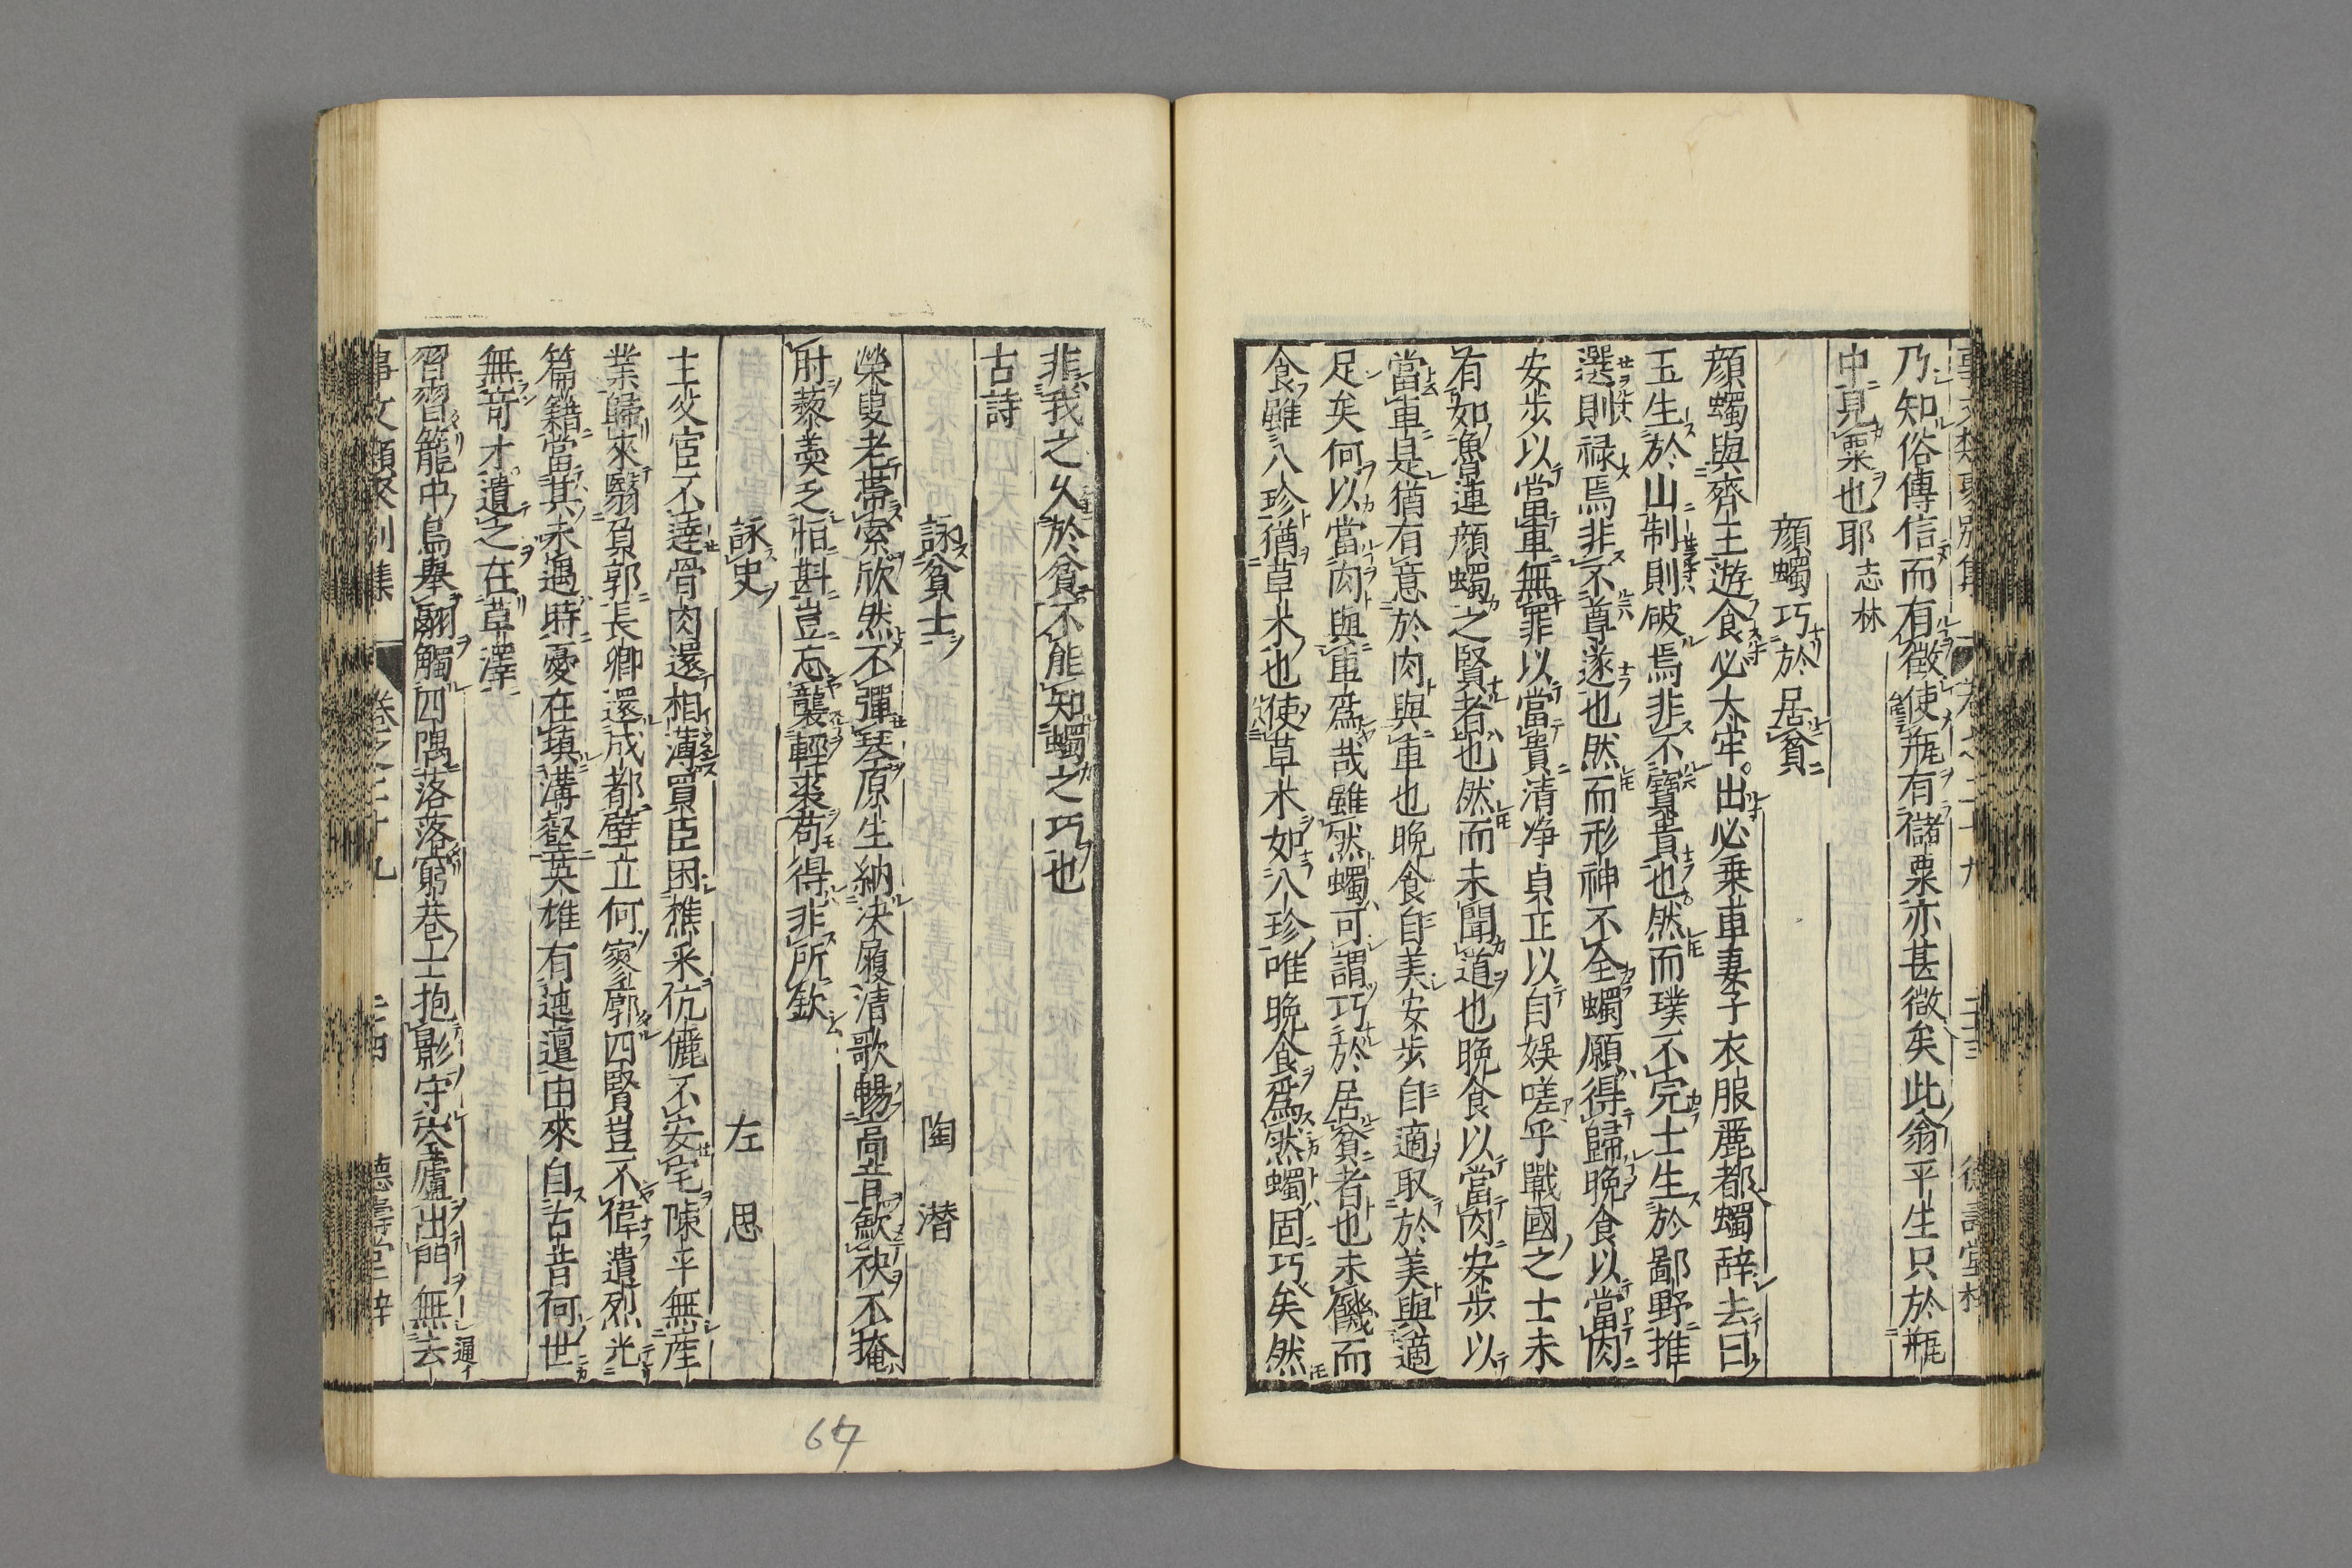 事文類聚別集 卷之二十九 二十三 德壽堂梓
乃知俗傳信而有徵使瓶有儲粟亦甚微矣此翁平生只於瓶
中見粟也耶 志林
顔蠋巧於居貧
顔蠋與齊王遊食必太牢出必乗車妻子衣服麗都蠋辭去曰
玉生於山制則破焉非不寶貴也然而璞不完士生於鄙野推
選則祿焉非不尊遂也然而形神不全蠋願得歸晚食以當肉
安步以當車無罪以當貴清净貞正以自娯嗟乎戰國之士未
有如魯連顔蠋之賢者也然而未聞道也晚食以當肉安步以
當車是猶有意於肉與車也晚食自美安步自適取於美與適
足矣何以當肉與車爲哉雖然蠋可謂巧於居貧者也未饑而
食雖八珍猶草木也使草木如八珍唯晚食爲然蠋固巧矣然
非我之久於貧不能知蠋之巧也
古詩
詠貧士 陶潜
榮叟老帶索欣然不彈琴原生納决履清歌暢啇音歛袂不掩
肘藜羮乏恒斟豈忘襲輕裘苟得非所欽
詠史 左思
主父宦不達骨肉還相薄買臣困樵采伉儷不安宅陳平無產
業歸來翳負郭長卿還成都壁立何寥廓四賢豈不偉遺烈光
篇籍當其未遇時憂在填溝壑英雄有迍邅由來自古昔何世
無竒才遺之在草澤
習習籠中鳥舉翮觸四隅落落窮巷士抱影守空廬出門無去 通イ
事文類聚別集 卷之二十九 二十四 德壽堂梓
67